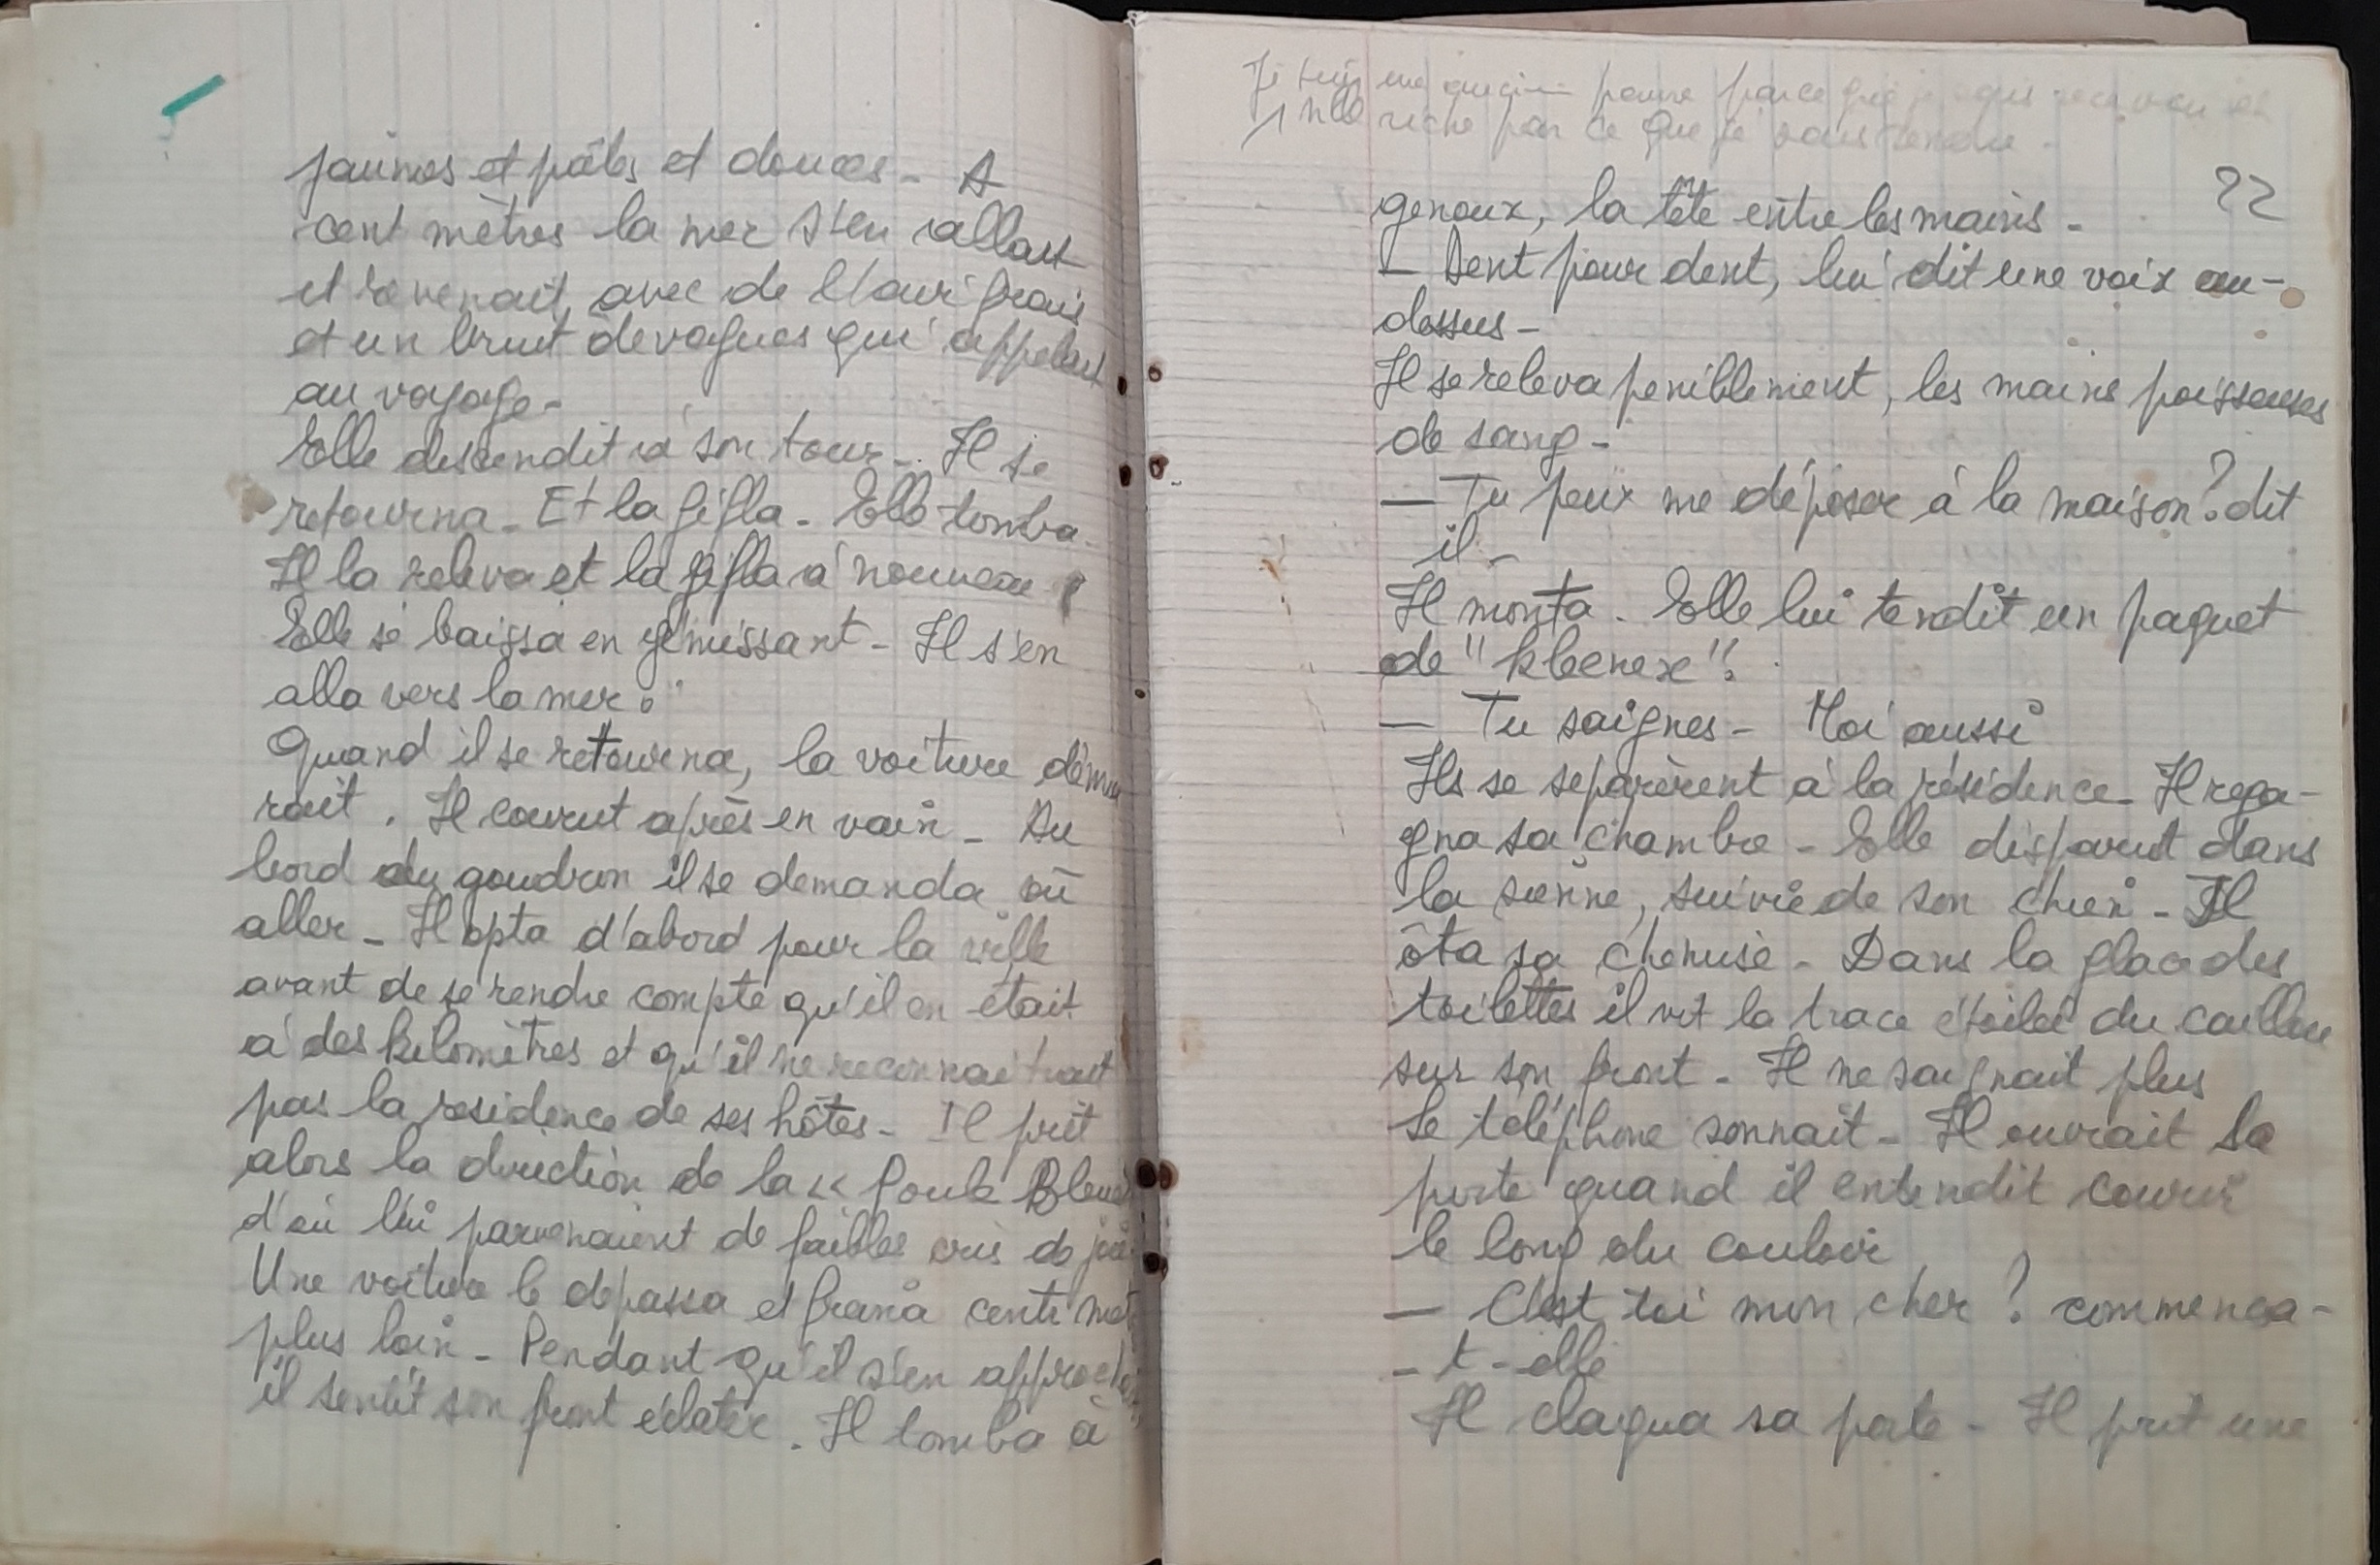 jaunes et pâles et douces - A
cent mètres la mer s'en allait
et revenait avec de l'air frais
et un bruit de vagues qui appelait
au voyage -
Elle descendit à son tour - Il se
retourna - Et la gifla - Elle tomba -
Il la releva et la gifla à nouveau
Elle se baissa en gémissant - Il s'en
alla vers la mer.
Quand il se retourna, la voiture démar
rait. Il courut après en vain - Au
bord du goudron il se demanda où
aller - Il opta d'abord pour la ville
avant de se rendre compte qu'il en était
à des kilomètres et qu'il ne reconnaitrait
pas la residence de ses hôtes - Il prit
alors la direction de la « Poule Bleue
d'où lui parvenaient de faibles cris de joie
Une voiture le depassa et freina cent mètres
plus loin - Pendant qu'il s'en approchait
il sentit son front éclater. Il tomba à
Je suis une pauvre parce que je
riche par ce que je vous
22
genoux, la tête entre les mains -
- Dent pour dent, lui dit une voix au-
dessus -
Il se releva peniblement, les mains poisseuses
de sang -
- Tu peux me déposer à la maison? dit
il -
Il monta. Elle lui tendit un paquet
de "kleenex".
- Tu saignes - Moi aussi
Ils se separèrent à la résidence - Il rega-
gna sa chambre - Elle disparut dans
la sienne, suivie de son chien - Il
ôta sa chemise - Dans la glace des
toilettes il vit la trace étoilée du caillou
sur son front - Il ne saignait plus
Le téléphone sonnait - Il ouvrait la
porte quand il entendit courir
le long du couloir
- C'est toi mon cher ? commença-
- t - elle
Il claqua sa porte - Il prit une